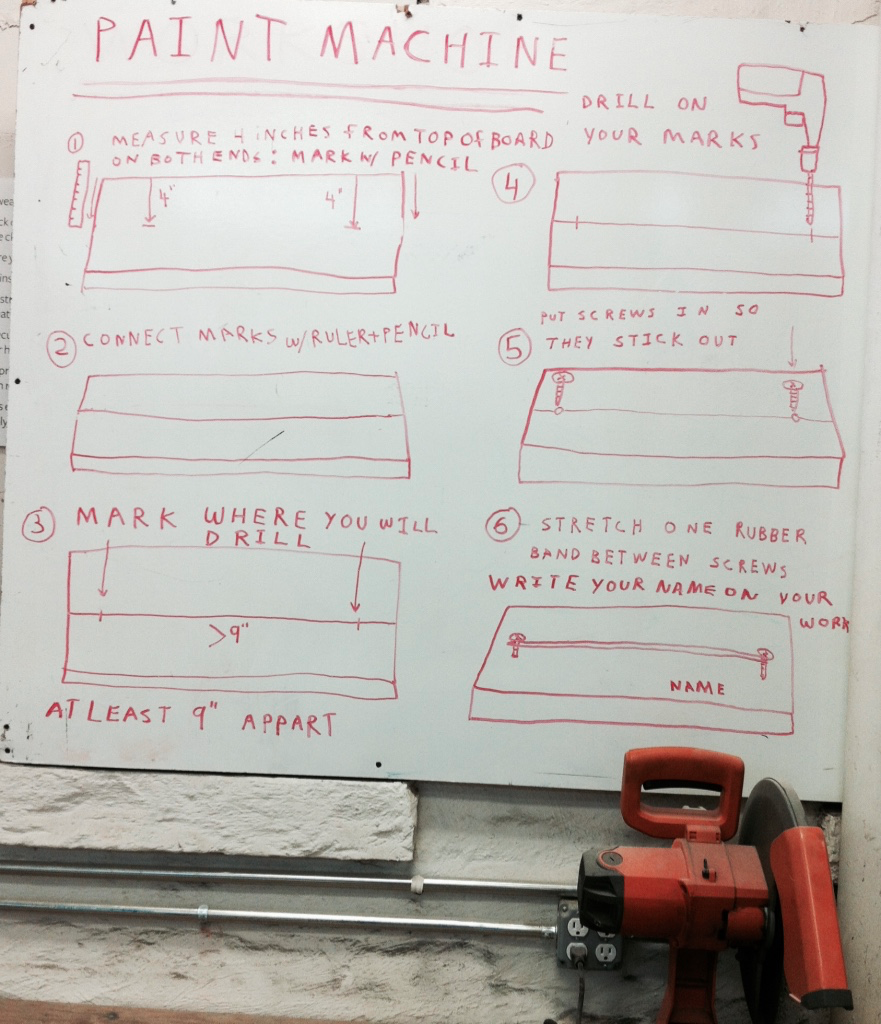 PAINT MACHINE
① MEASURE 4 INCHES FROM TOP OF BOARD
ON BOTH ENDS: MARK W/ PENCIL
4"
4"
② CONNECT MARKS W/RULER+PENCIL
③ MARK WHERE YOU WILL
DRILL
>9"
ATLEAST 9" APPART
DRILL ON
YOUR MARKS
④
PUT SCREWS IN SO
⑤ THEY STICK OUT
⑥ STRETCH ONE RUBBER
BAND BETWEEN SCREWS
WRITE YOUR NAME ON YOUR
WORK
NAME